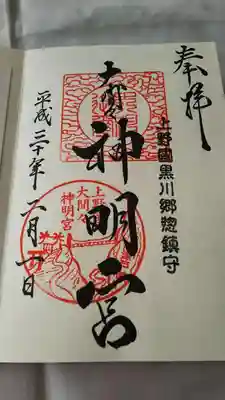 奉拝
上野國黒川郷惣鎮守
大間々
神明宮
上野
大間々
神明宮
平成三十年二月一日